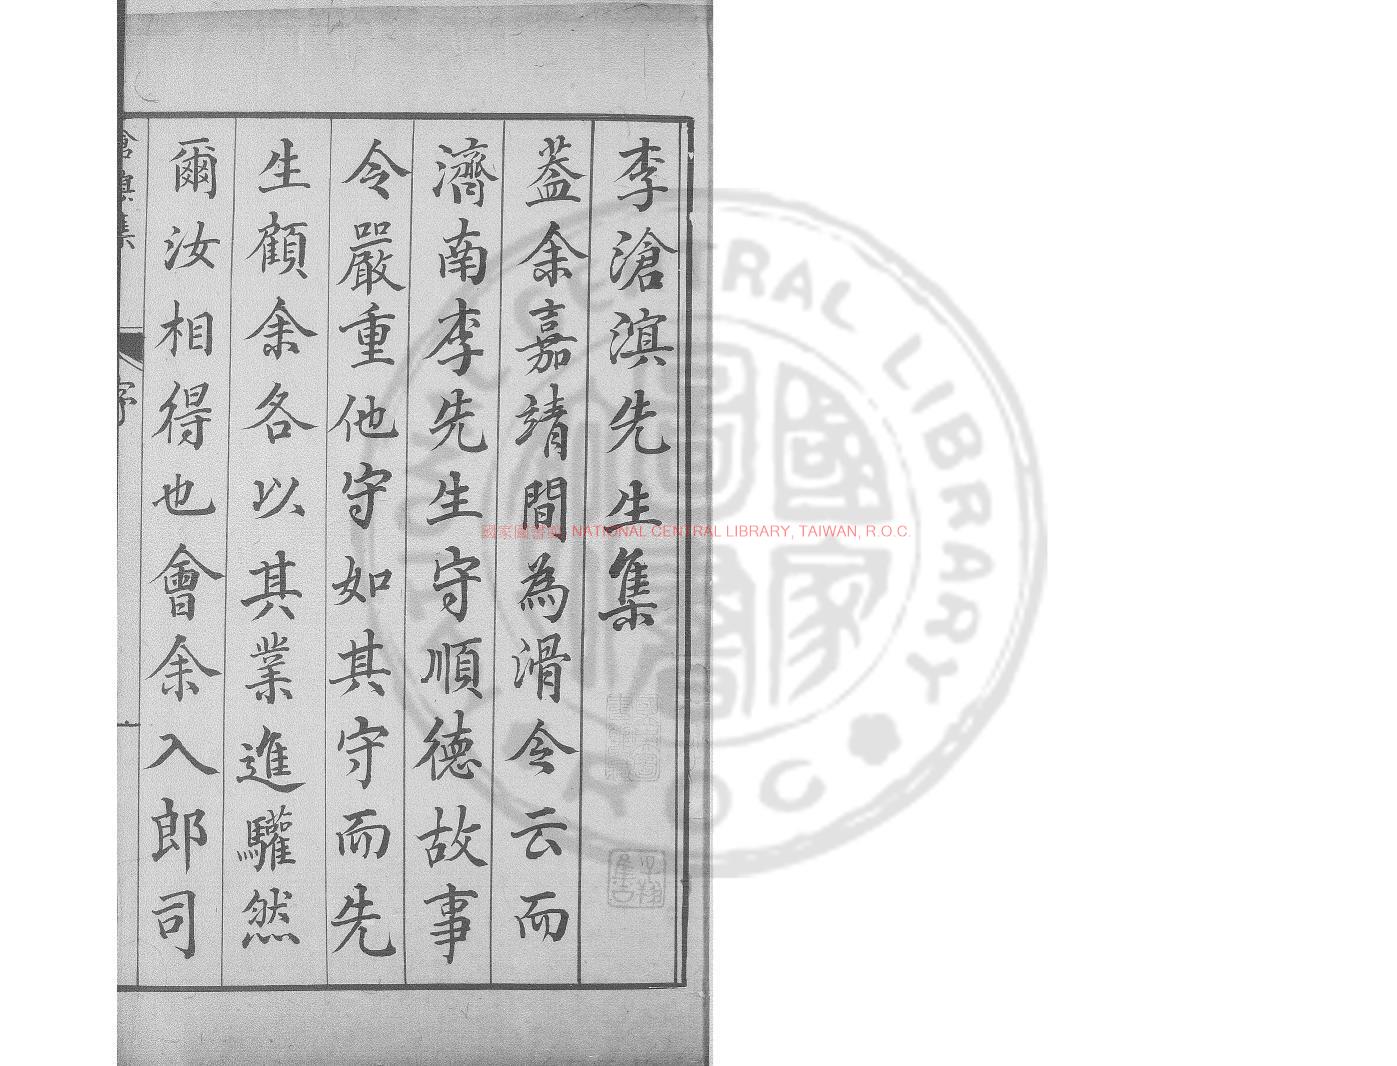 李滄溟先生集
葢余嘉靖間為滑令云而
濟南李先生守順德故事
令嚴重他守如其守而先
生顧余各以其業進驩然
爾汝相得也會余入郎司
滄溟集
序
國家圖書館 NATIONAL CENTRAL LIBRARY, TAIWAN, R.O.C.
CENTRAL LIBRARY
R O C